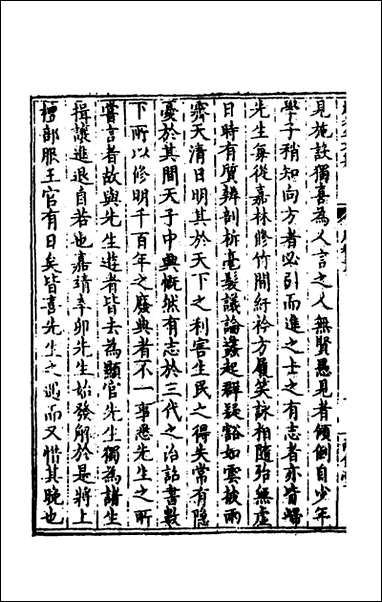 見施設獨喜為人言之人無賢愚見者傾倒自少年
學子稍知向方者必引而進之士之有志者亦皆歸
先生每從嘉林修竹間紆衿方履笑詠相隨殆無虛
日時有質辨剖析毫髮議論蠭起群疑豁如雲披雨
霽天清日明其於天下之利害生民之得失常有隱
憂於其間天子中興慨然有志於三代之治詔書數
下所以修明千百年之廢典者不一事悉先生之所
嘗言者故與先生遊者皆去為顯官先生獨為諸生
揖讓進退自若也嘉靖辛卯先生始發解於是將上
禮部服王官有日矣皆喜先生之遇而又惜其晚也